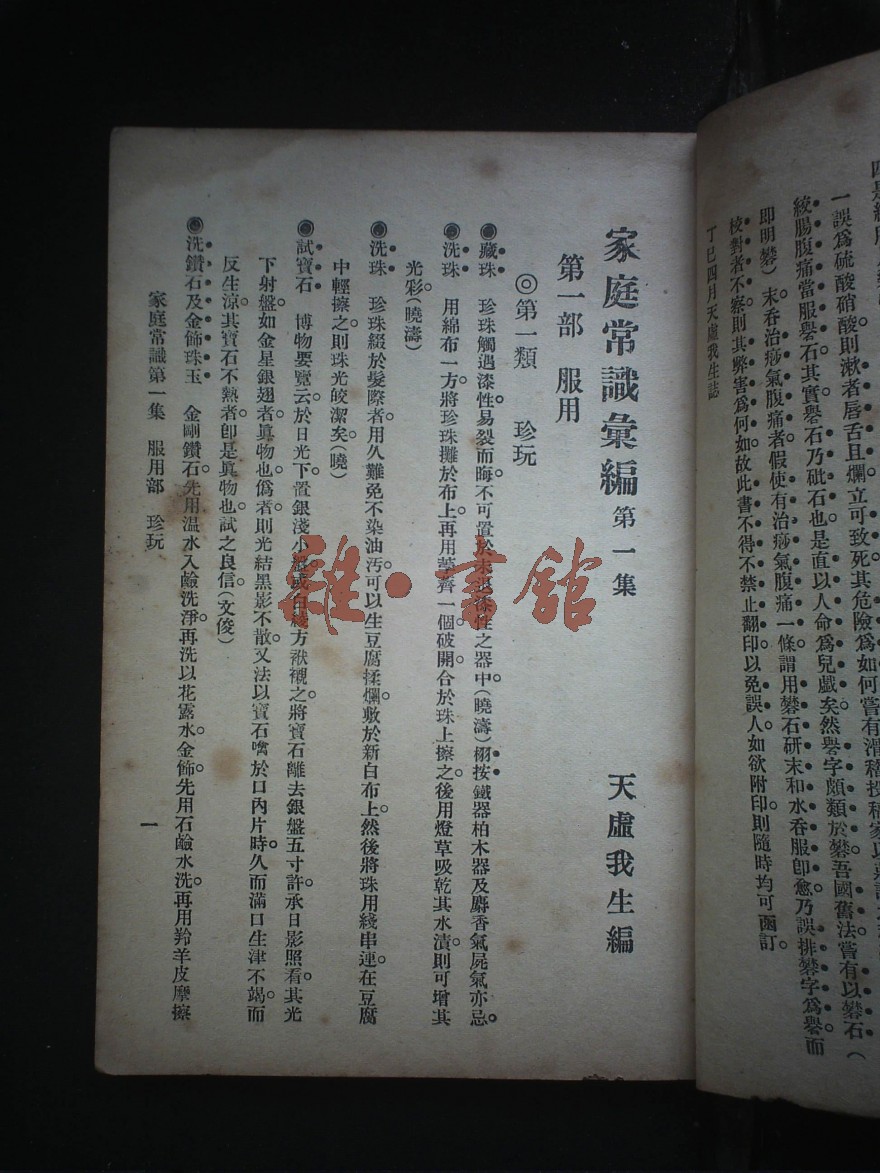 一誤爲硫酸硝酸則漱者唇舌且爛立可致死其危險爲如何嘗有滑稽投稿家以
絞腸腹痛當服礬石。其實礜石乃砒石也是直以人命爲兒戲矣然礜字頗類於礬吾國舊法嘗有以礬石（
即明礬）末呑治痧氣腹痛者假使有治痧氣腹痛一條謂用礬石研末和水呑服卽愈乃誤排礬字爲礜而
校對者不察則其弊害爲何如故此書不得不禁止翻印以免誤人如欲附印則隨時均可函訂。
丁巳四月天虛我生誌
家庭常識彙編 第一集 天虛我生編
第一部 服用
◎第一類 珍玩
◉藏珠 珍珠觸遇漆性易裂而晦不可置於未退漆性之器中（曉濤）栩按鐵器柏木器及麝香氣屍氣亦忌。
◉洗珠 用綿布一方將珍珠攤於布上再用荸薺一個破開合於珠上擦之後用燈草吸乾其水漬則可增其
光彩。（曉濤）
◉洗珠 珍珠綴於髮際者用久難免不染油汚。可以生豆腐揉爛敷於新白布上。然後將珠用綫串連在豆腐
中輕擦之則珠光皎潔矣（曉）
◉試寶石 博物要覽云於日光下置銀淺小盤或白綾方袱襯之將寶石離去銀盤五寸許承日影照看。其光
下射盤如金星銀翅者眞物也僞者則光結黑影不散。又法以寶石噙於口內片時。久而滿口生津不竭而
反生涼。其寶石不熱者。卽是眞物也試之良信（文俊）
◉洗鑽石及金飾珠玉 金剛鑽石先用溫水入鹼洗淨。再洗以花露水。金飾先用石鹼水洗。再用羚羊皮摩擦
家庭常識第一集 服用部 珍玩
一
雜·書館